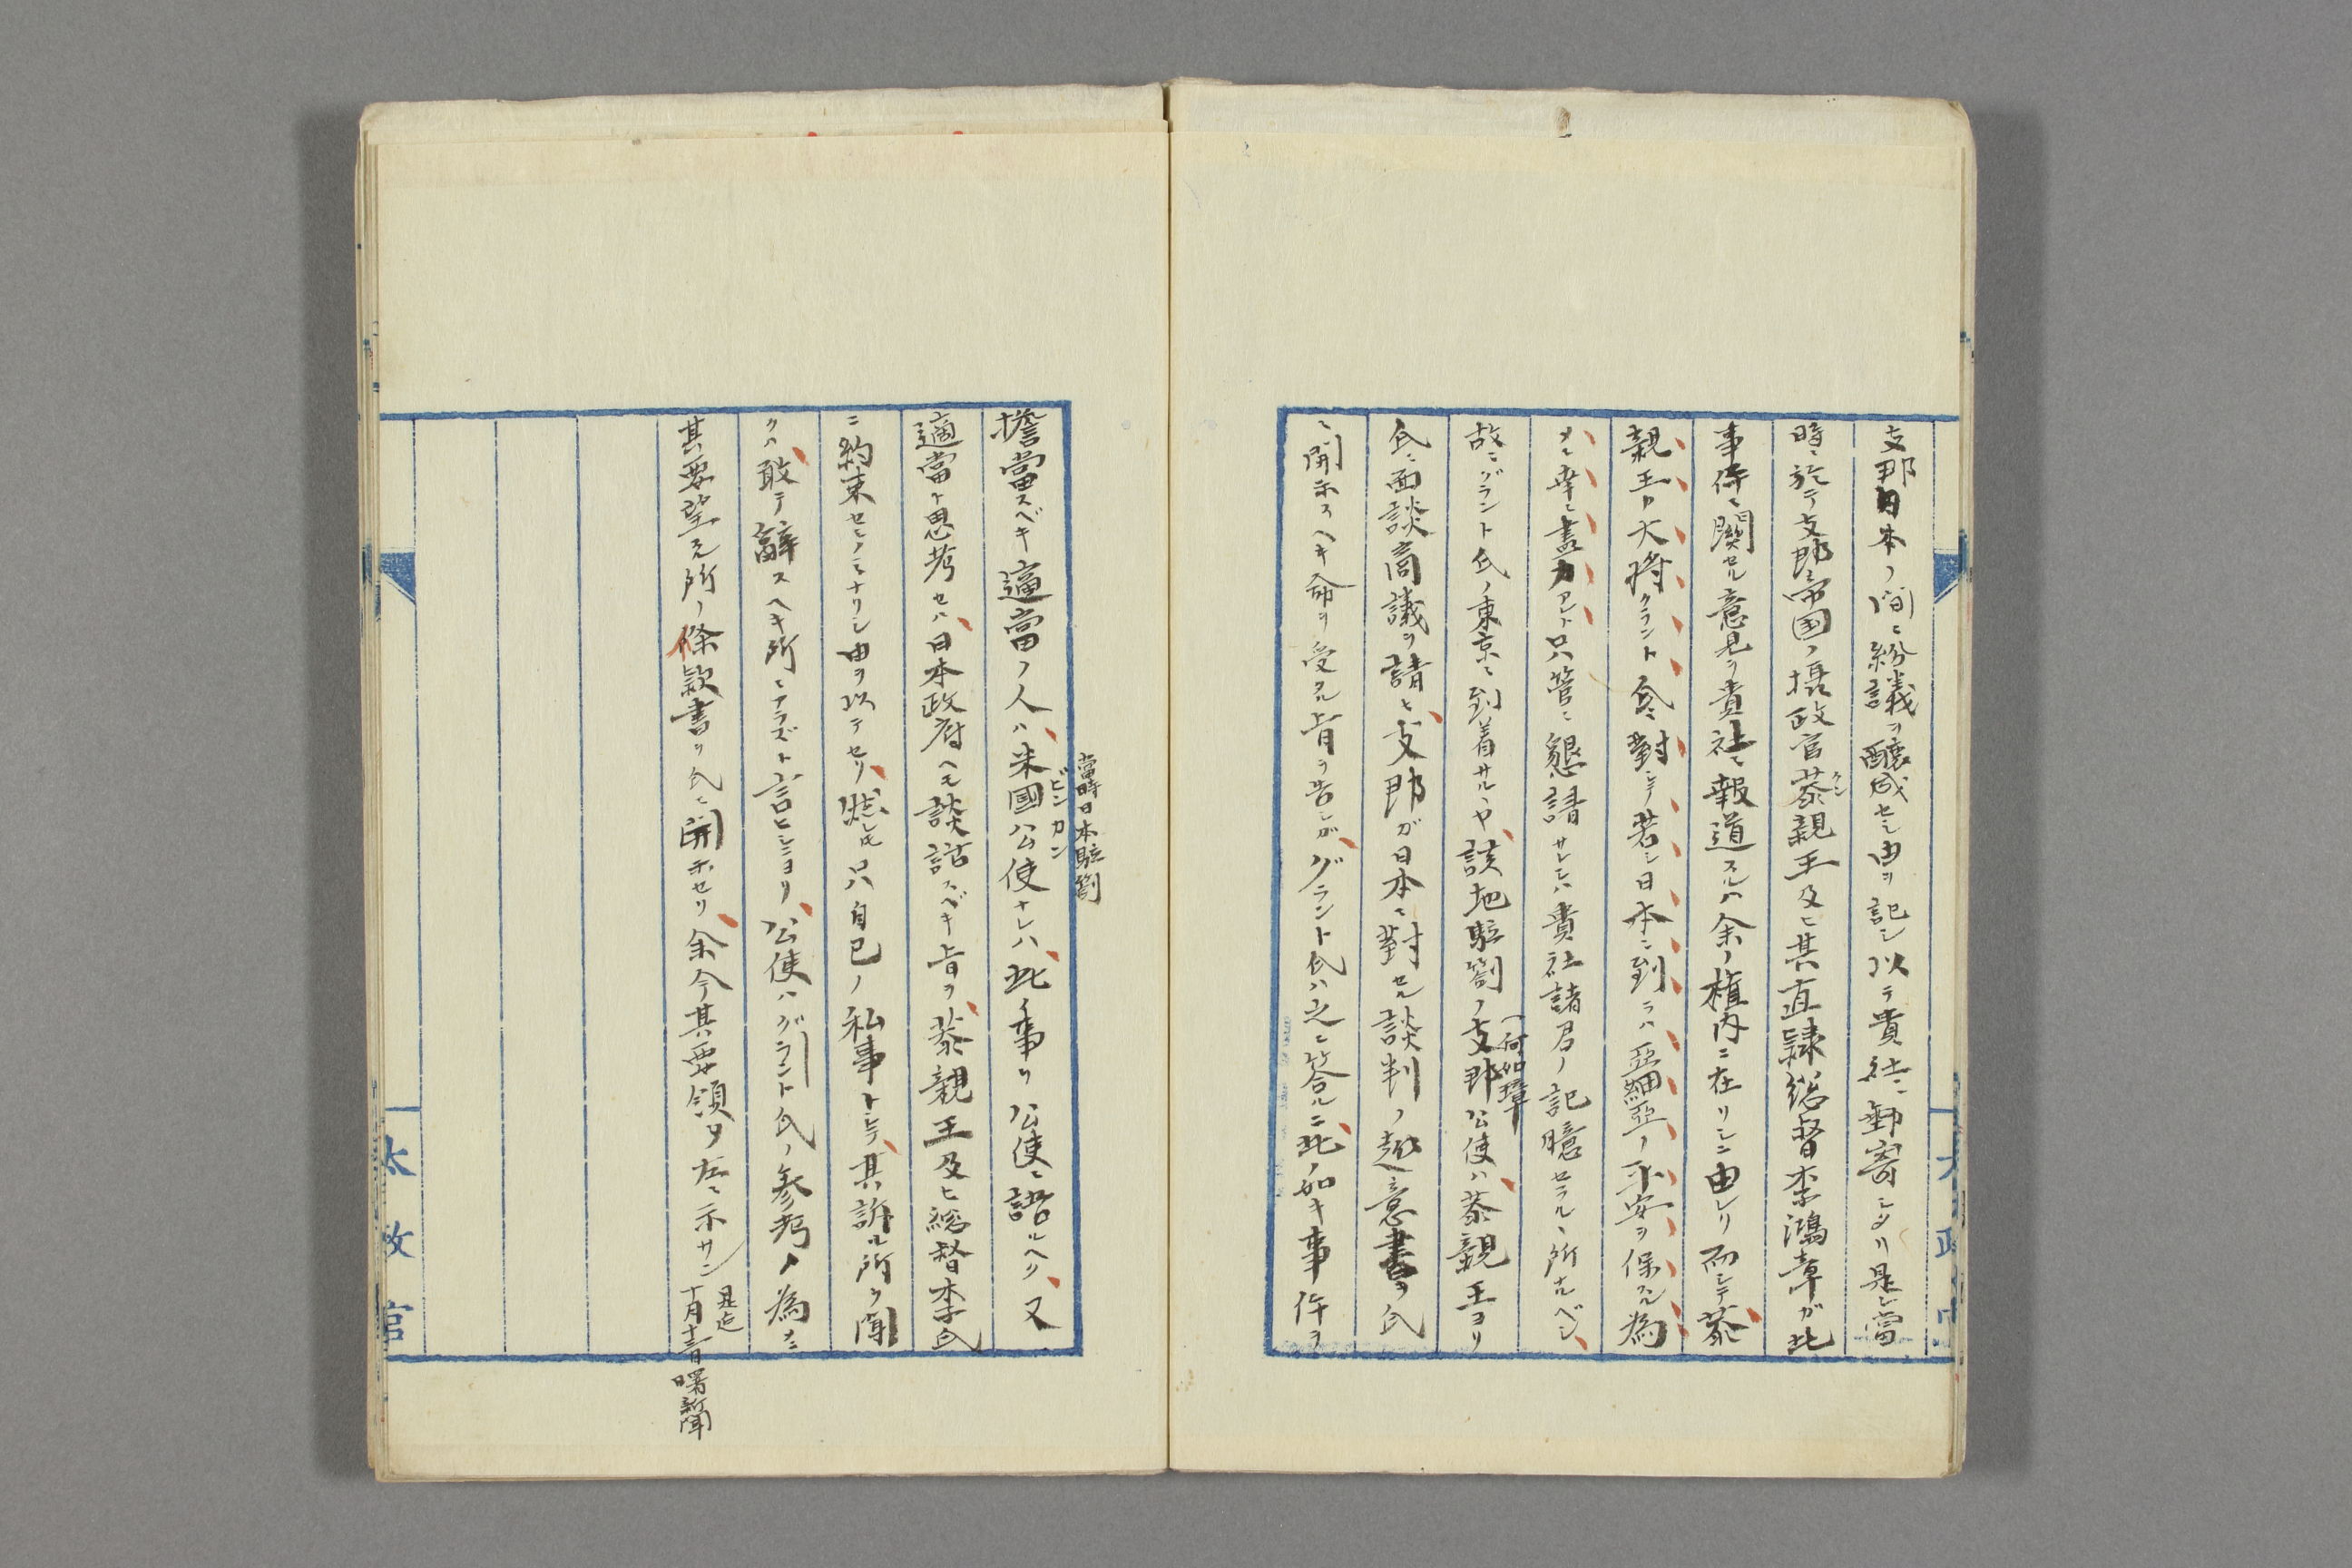 支那日本ノ間ニ紛議ヲ醸成セシ由ヲ記シ以テ貴社ニ郵寄シタリ是レ當
時ニ於テ支那帝国ノ摂政官恭親王及ヒ其直隷総督李鴻章ガ此
クン
事件ニ関セル意見ヲ貴社ニ報道スルハ余ノ権内ニ在リシニ由レリ而シテ恭
親王ハ大将クラント氏ニ對シテ若シ日本ニ到ラハ亞細亞ノ平安ヲ保スル為
メニ幸ニ盡力アレト只管ニ懇請サレシハ貴社諸君ノ記臆セラルヽ所ナルベシ
故ニグラント氏ノ東京ニ到着サルヽヤ該地駐劄ノ支那公使ハ恭親王ヨリ
(何如璋
氏ニ面談商議ヲ請ヒ支那ガ日本ニ對セル談判ノ趣意書ヲ氏
ニ開示スヘキ命ヲ受タル旨ヲ告シガグラント氏ハ之ニ答ルニ此ノ如キ事件ヲ
擔當スベキ適當ノ人ハ米國公使ナレハ此ノ事ヲ公使ニ諮ルヘク又
當時日本駐劄
ビンカン
適當ト思考セハ日本政府ヘモ談話スベキ旨ヲ恭親王及ヒ総督李氏
ニ約束セシノミナリシ由ヲ以テセリ然レ𪜈只自己ノ私事トシテ其訴ル所ヲ聞
クハ敢テ辭スヘキ所ニアラズト言ヒシニヨリ公使ハグラント氏ノ参考ノ為メニ
其要望スル所ノ條款書ヲ氏ニ開示セリ余今其要領ヲ左ニ示サン
是迠
十月十三日曙新聞
太政官
太政官